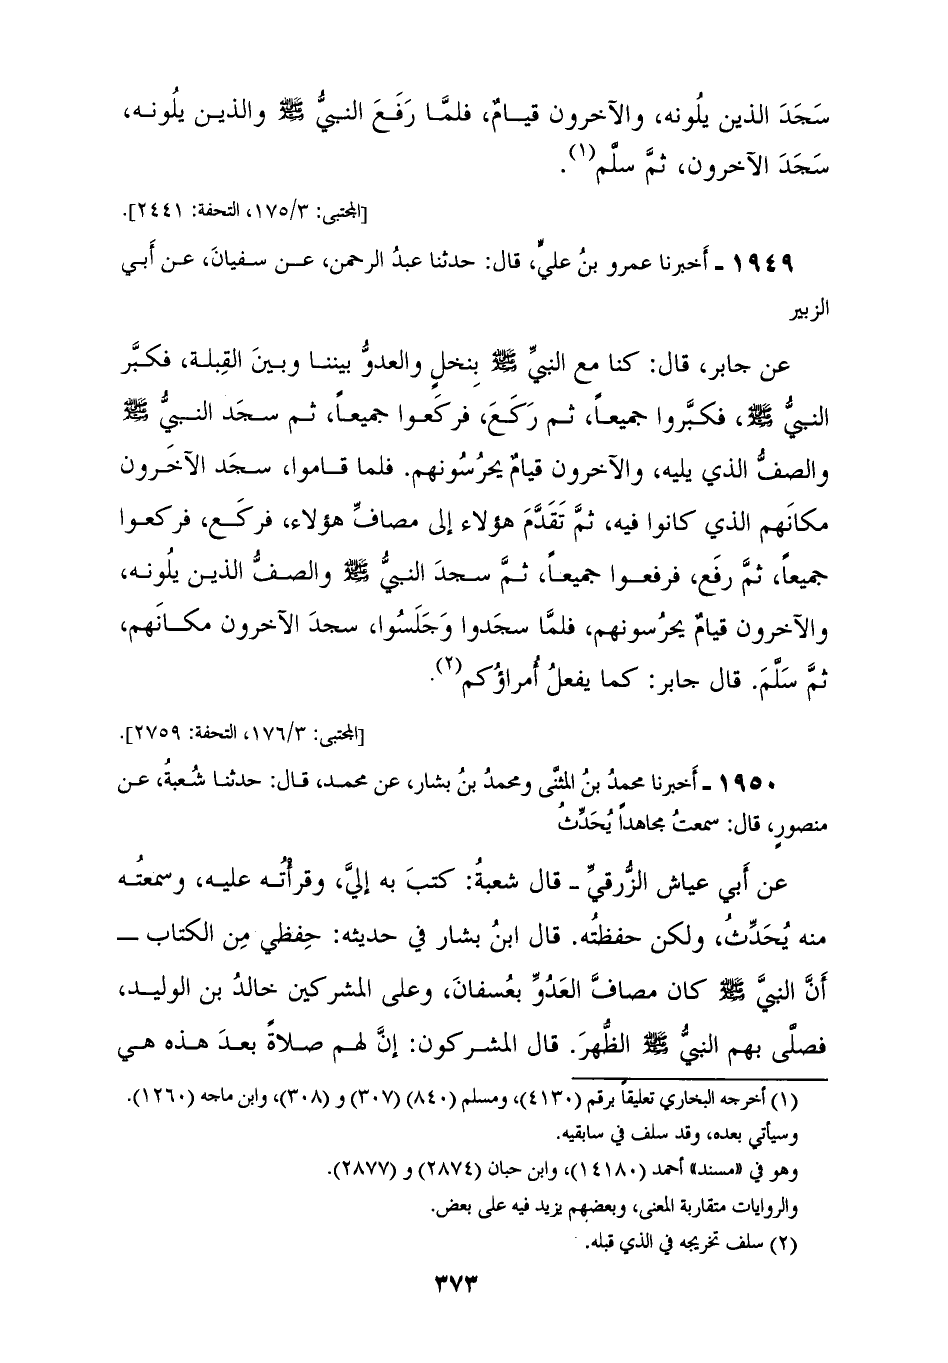 سَجَدَ الذين يلُونه، والآخرون قيامٌ، فلمَّا رَفَعَ النبيُّ ﷺ والذين يلُونه،
سَجَدَ الآخرون، ثمَّ سلَّم(١).
[المجتبى: ١٧٥/٣، التحفة: ٢٤٤١].
١٩٤٩ ـ أَخبرنا عمرو بنُ عليٍّ، قال: حدثنا عبدُ الرحمن، عن سفيانَ، عن أَبي
الزبير
عن جابر، قال: كنا مع النبيِّ ﷺ بِنخلٍ والعدوُّ بيننا وبينَ القِبلة، فكبَّر
النبيُّ ﷺ، فكبَّروا جميعاً، ثم رَكَعَ، فركَعوا جميعاً، ثم سجَد النبيُّ ﷺ
والصفُّ الذي يليه، والآخرون قيامٌ يحرُسُونهم. فلما قاموا، سجَد الآخَرون
مكانَهم الذي كانوا فيه، ثمَّ تَقَدَّمَ هؤلاء إلى مصافِّ هؤلاء، فركَع، فركعوا
جميعاً، ثمَّ رفَع، فرفعوا جميعاً، ثمَّ سجدَ النبيُّ ﷺ والصفُّ الذين يلُونه،
والآخرون قيامٌ يحرُسونهم، فلمَّا سجَدوا وَجَلَسُوا، سجدَ الآخرون مكانَهم،
ثمَّ سَلَّمَ. قال جابر: كما يفعلُ أُمراؤُكم(٢).
[المجتبى: ١٧٦/٣، التحفة: ٢٧٥٩].
١٩٥٠ ـ أَخبرنا محمدُ بنُ المثنَّى ومحمدُ بنُ بشار، عن محمد، قال: حدثنا شُعبةُ، عن
منصورٍ، قال: سمعتُ مجاهداً يُحَدِّثُ
عن أَبي عياش الزُّرقيِّ ـ قال شعبةُ: كتبَ به إليَّ، وقرأتُه عليه، وسمعتُه
منه يُحَدِّثُ، ولكن حفظتُه. قال ابنُ بشار في حديثه: حِفظي مِن الكتاب ـ
أَنَّ النبيَّ ﷺ كان مصافَّ العَدُوِّ بعُسفانَ، وعلى المشركين خالدُ بن الوليد،
فصلَّى بهم النبيُّ ﷺ الظُّهرَ. قال المشركون: إنَّ لهم صلاةً بعدَ هذه هي
(١) أخرجه البخاري تعليقاً برقم (٤١٣٠)، ومسلم (٨٤٠) (٣٠٧) و (٣٠٨)، وابن ماجه (١٢٦٠).
وسيأتي بعده، وقد سلف في سابقيه.
وهو في «مسند» أحمد (١٤١٨٠)، وابن حبان (٢٨٧٤) و (٢٨٧٧).
والروايات متقاربة المعنى، وبعضهم يزيد فيه على بعض.
(٢) سلف تخريجه في الذي قبله.
٣٧٣